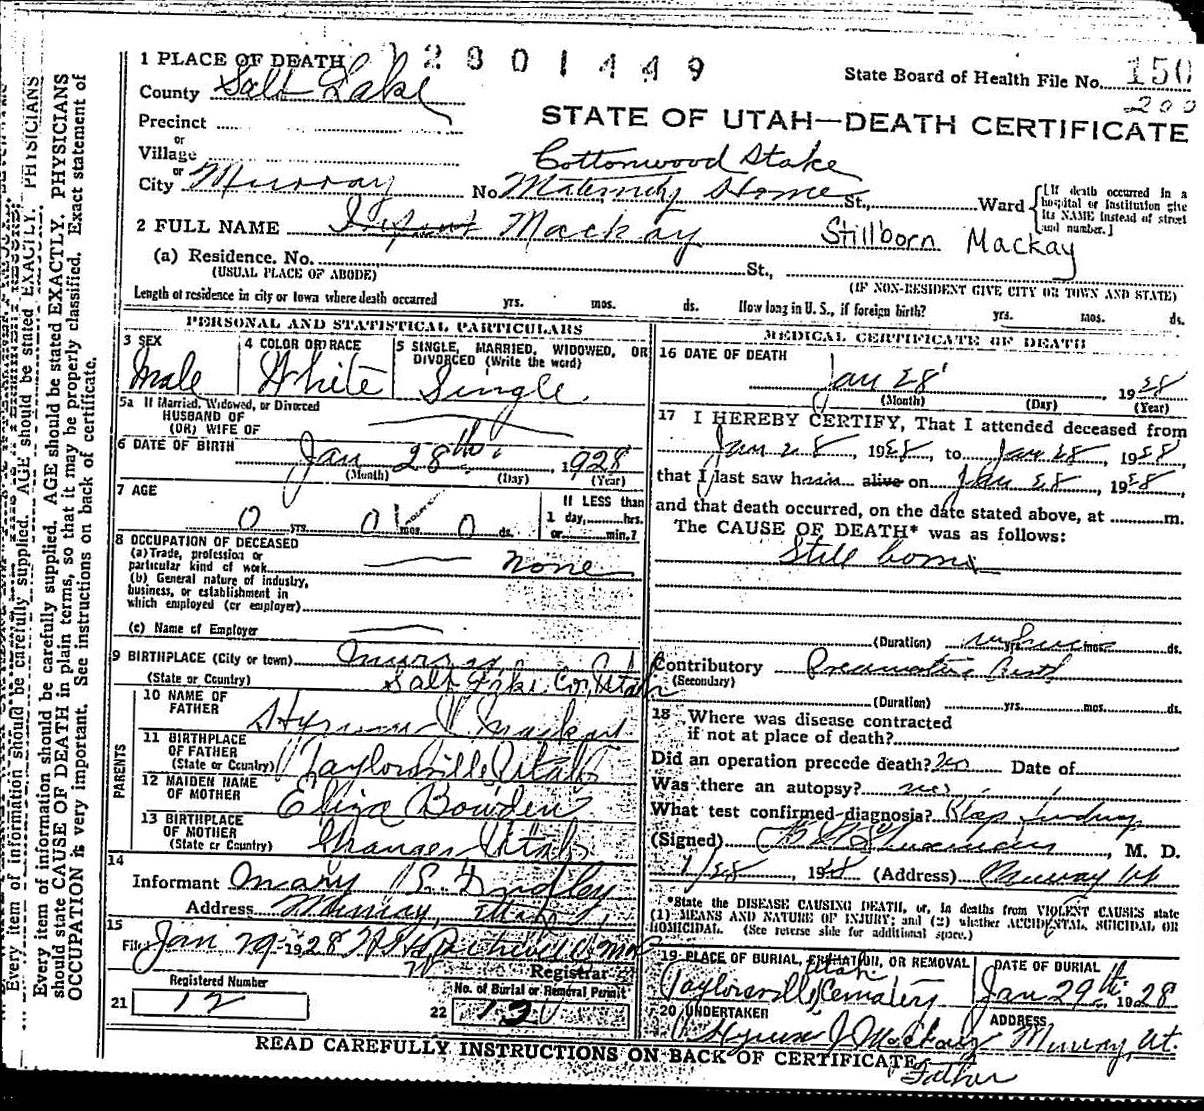 1 PLACE OF DEATH 2801449
State Board of Health File No. 150
200
County Salt Lake
STATE OF UTAH—DEATH CERTIFICATE
Precinct
or
Village
Cottonwood Stake
or
City Murray No. Maternity Home St., Ward
[If death occurred in a hospital or institution give its NAME instead of street and number.]
2 FULL NAME Infant Mackay Stillborn Mackay
(a) Residence. No. St.,
(USUAL PLACE OF ABODE) (IF NON-RESIDENT GIVE CITY OR TOWN AND STATE)
Length of residence in city or town where death occurred yrs. mos. ds. How long in U. S., if foreign birth? yrs. mos. ds.
PERSONAL AND STATISTICAL PARTICULARS
3 SEX Male
4 COLOR OR RACE White
5 SINGLE, MARRIED, WIDOWED, OR DIVORCED (Write the word) Single
5a If Married, Widowed, or Divorced
HUSBAND OF
(OR) WIFE OF
6 DATE OF BIRTH Jan 28th 1928
(Month) (Day) (Year)
7 AGE
0 yrs. 0 mos. 0 ds.
If LESS than
1 day, hrs.
or min.?
8 OCCUPATION OF DECEASED
(a) Trade, profession or
particular kind of work None
(b) General nature of industry,
business, or establishment in
which employed (or employer)
(c) Name of Employer
9 BIRTHPLACE (City or town) Murray
(State or Country) Salt Lake Co, Utah
PARENTS
10 NAME OF
FATHER Hyrum J. Mackay
11 BIRTHPLACE
OF FATHER
(State or Country) Taylorsville, Utah
12 MAIDEN NAME
OF MOTHER Eliza Bowden
13 BIRTHPLACE
OF MOTHER
(State or Country) Granger Utah
14
Informant Mary S. Findley
Address Murray, Utah
15
File Jan 29 1928
Registrar
Registered Number
21 12
No. of Burial or Removal Permit
22
MEDICAL CERTIFICATE OF DEATH
16 DATE OF DEATH
Jan 28 1928
(Month) (Day) (Year)
17 I HEREBY CERTIFY, That I attended deceased from
Jan 28, 1928, to Jan 28, 1928
that I last saw him alive on Jan 28, 1928,
and that death occurred, on the date stated above, at m.
The CAUSE OF DEATH* was as follows:
Still born
(Duration) yrs. mos. ds.
Contributory Premature Birth
(Secondary)
(Duration) yrs. mos. ds.
18 Where was disease contracted
if not at place of death?
Did an operation precede death? no Date of
Was there an autopsy? no
What test confirmed diagnosis?
(Signed) , M. D.
1/28, 1928 (Address) Murray Ut
*State the DISEASE CAUSING DEATH, or, in deaths from VIOLENT CAUSES state
(1) MEANS AND NATURE OF INJURY; and (2) whether ACCIDENTAL, SUICIDAL OR
HOMICIDAL. (See reverse side for additional space.)
19 PLACE OF BURIAL, CREMATION, OR REMOVAL
Utah
Taylorsville Cemetery
DATE OF BURIAL
Jan 29th 1928
20 UNDERTAKER
Hyrum J Mackay
Father
ADDRESS
Murray, Ut.
READ CAREFULLY INSTRUCTIONS ON BACK OF CERTIFICATE
Every item of information should be carefully supplied. AGE should be stated EXACTLY. PHYSICIANS
Every item of information should be carefully supplied. AGE should be stated EXACTLY. PHYSICIANS
should state CAUSE OF DEATH in plain terms, so that it may be properly classified. Exact statement of
OCCUPATION is very important. See instructions on back of certificate.